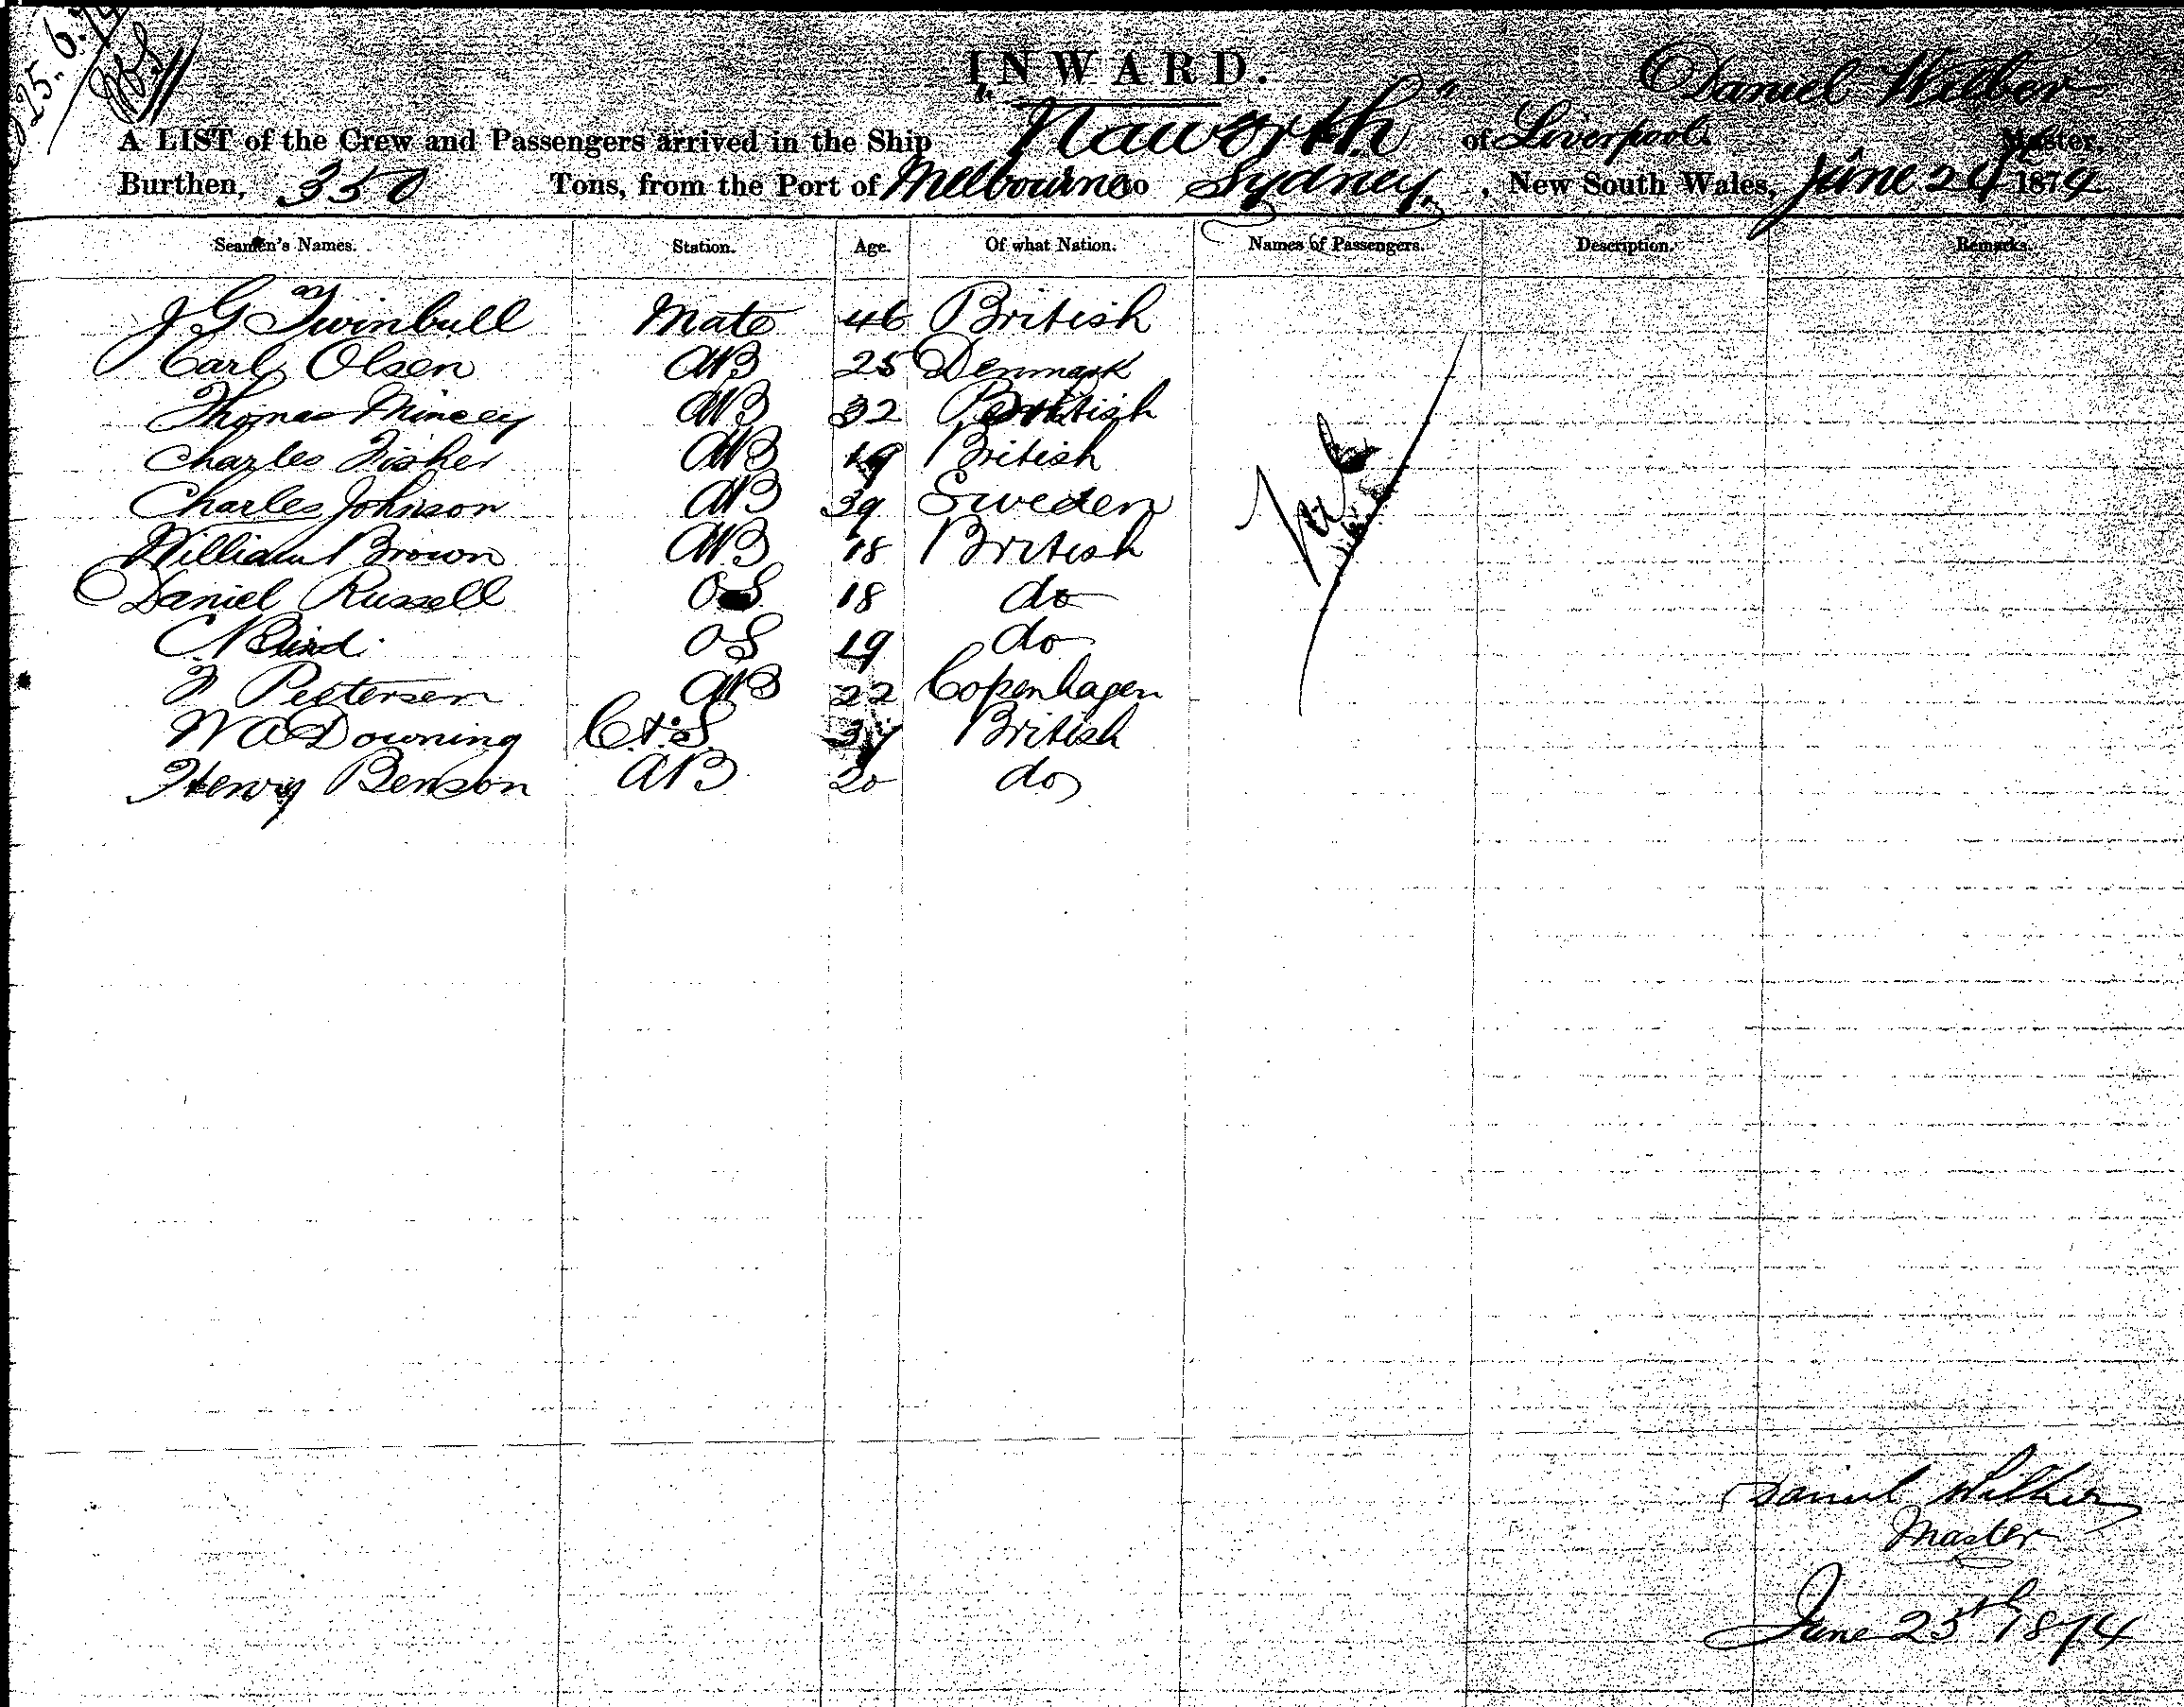 25.6.74
INWARD.
Daniel Wilber
A LIST of the Crew and Passengers arrived in the Ship "Naworth" of Liverpool Master,
Burthen, 350 Tons, from the Port of Melbourne to Sydney, New South Wales, June 24 1874
Seamen's Names. Station. Age. Of what Nation. Names of Passengers. Description. Remarks.
J G Twinbull Mate 46 British
Carl Olsen AB 25 Denmark
Thomas AB 32 British
Charles Fisher AB 19 British
Charles Johnson AB 39 Sweden
William Brown AB 18 British
Daniel Russell OS 18 do
C Bird OS 19 do
Pettersen AB 22 Copenhagen
W A Downing C & S British
Henry Benson AB 20 do
Nil
Daniel Wilber
Master
June 25th 1874